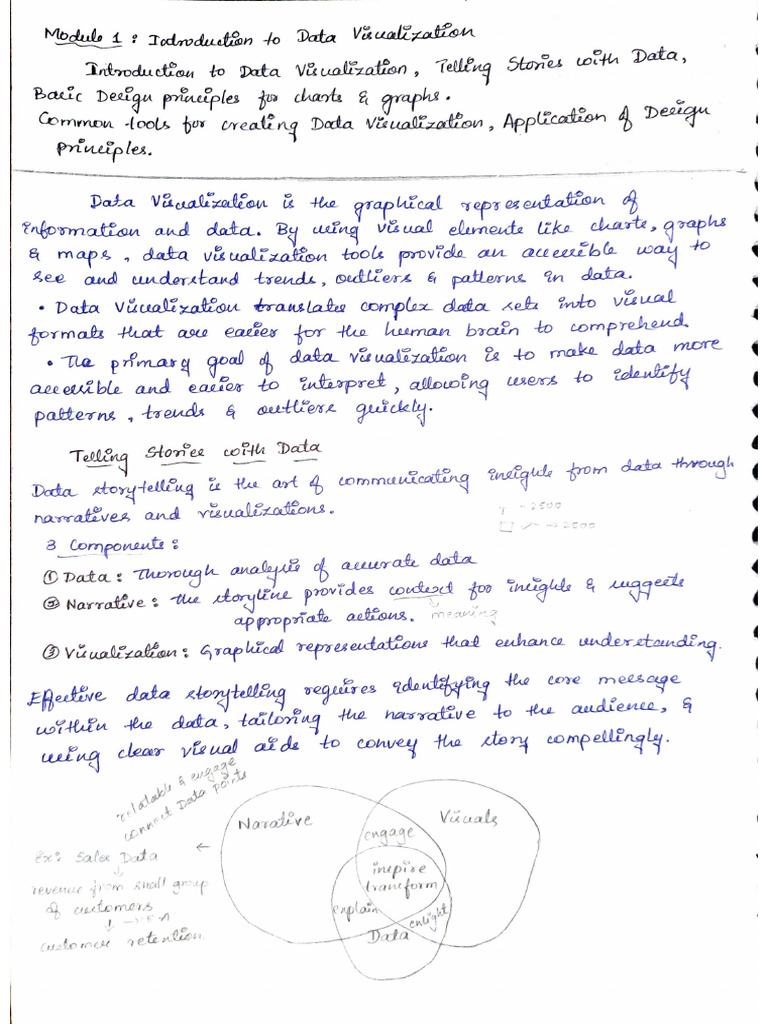 Module 1 : Introduction to Data Visualization
Introduction to Data Visualization, Telling Stories with Data,
Basic Design principles for charts & graphs.
Common tools for creating Data Visualization, Application of Design
principles.
Data Visualization is the graphical representation of
information and data. By using visual elements like charts, graphs
& maps, data visualization tools provide an accessible way to
see and understand trends, outliers & patterns in data.
• Data Visualization translates complex data sets into visual
formats that are easier for the human brain to comprehend.
• The primary goal of data visualization is to make data more
accessible and easier to interpret, allowing users to identify
patterns, trends & outliers quickly.
Telling Stories with Data
Data storytelling is the art of communicating insights from data through
narratives and visualizations.
- 2500
→ 2500
3 Components :
① Data : Thorough analysis of accurate data
② Narrative : the storyline provides context for insights & suggests
appropriate actions. meaning
③ Visualization : Graphical representations that enhance understanding.
Effective data storytelling requires identifying the core message
within the data, tailoring the narrative to the audience, &
using clear visual aids to convey the story compellingly.
relatable & engage
connect Data points
Narative
Visuals
engage
Ex: Sales Data
inspire
transform
revenue from small group
of customers
explain
enlight
Data
customer retention